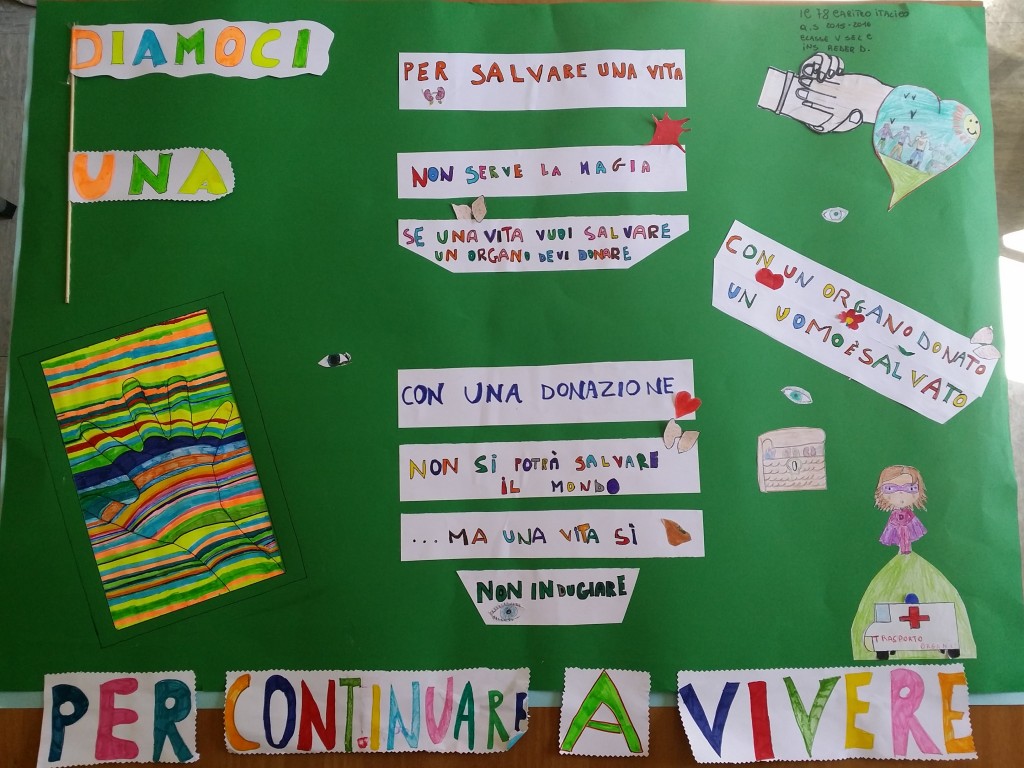 DIAMOCI
UNA
PER SALVARE UNA VITA
NON SERVE LA MAGIA
SE UNA VITA VUOI SALVARE
UN ORGANO DEVI DONARE
CON UNA DONAZIONE
NON SI POTRÀ SALVARE
IL MONDO
...MA UNA VITA SÌ
NON INDUGIARE
IC 78 CARITEO ITALICO
A.S 2015-2016
CLASSE V SEZ C
INS
CON UN ORGANO DONATO
UN UOMO È SALVATO
TRASPORTO
PER CONTINUARE A VIVERE